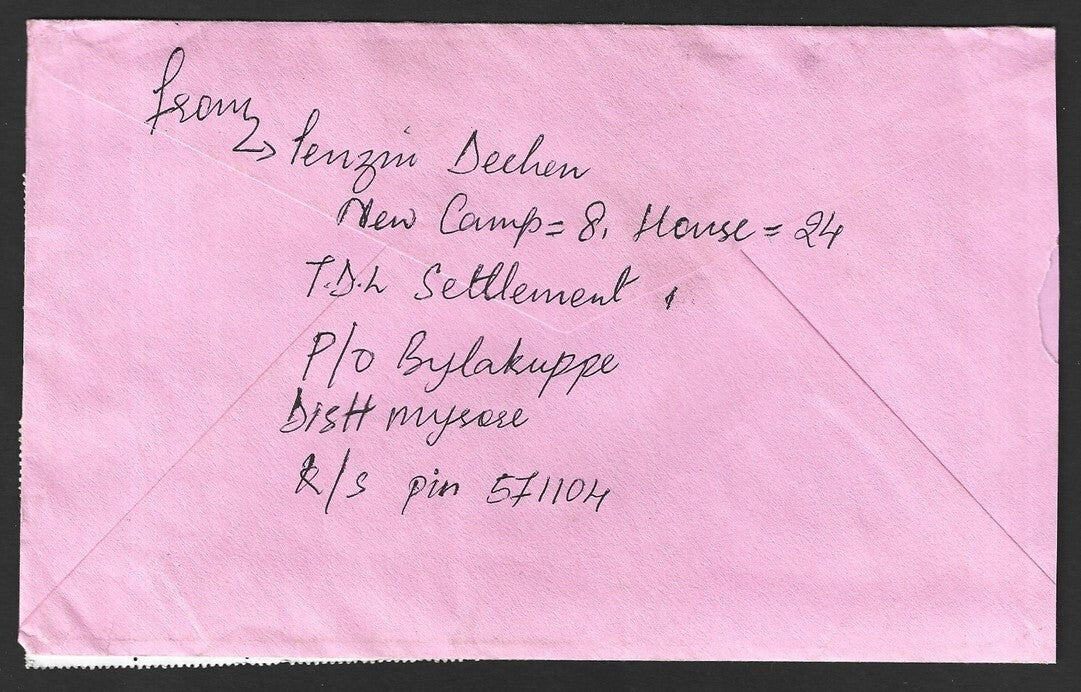 from
→ Tenzin Dechen
New Camp = 8, House = 24
T.D.L Settlement,
P/o Bylakuppe
Distt mysore
K/s pin 571104